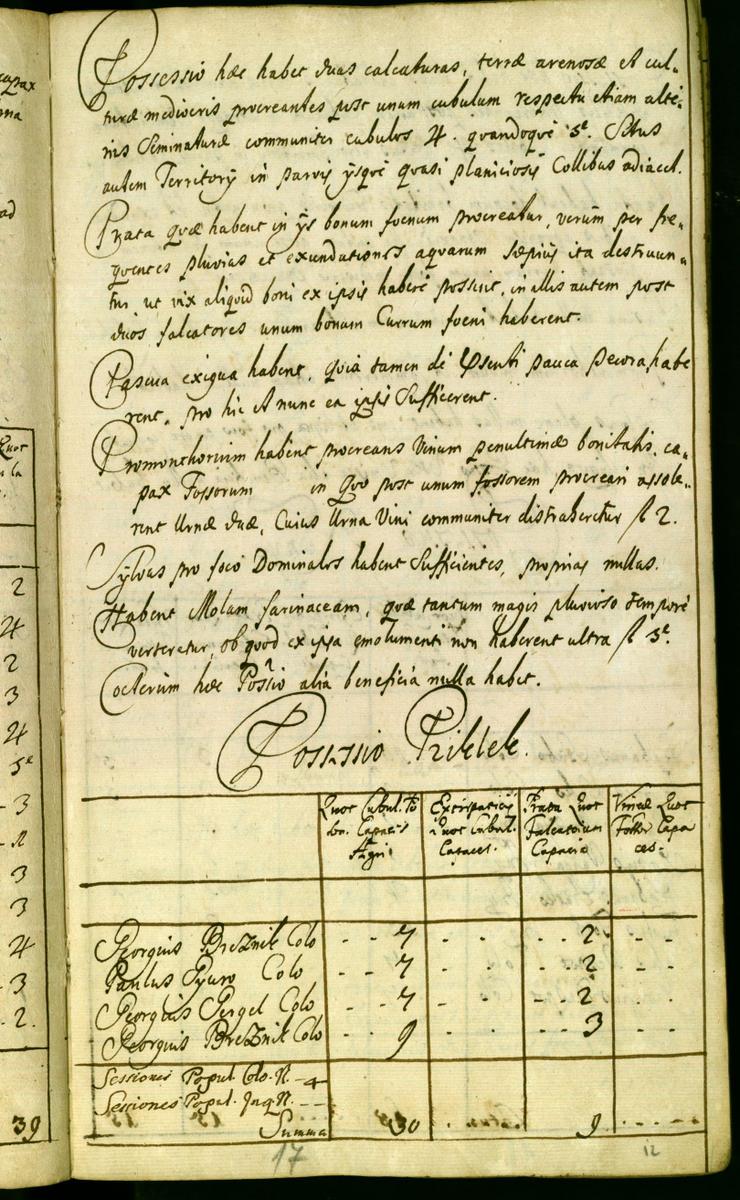 Possessio hæc habet duas calcaturas, terræ arenosæ et cul-
turæ mediocris procreantes post unum cubulum respectu etiam alte-
rius Seminaturæ communiter cubulos 4. quandoque 5. Situs
autem Territorÿ in parvis ÿsque quasi planiciosis Collibus adiacet.
Prata quæ habent in ÿs bonum foenum procreatur, verùm per fre-
quentes pluvias et exundationes aquarum sæpius ita destruun-
tur ut vix aliquid boni ex ipsis habere possint, in illis autem post
duos falcatores unum bonum Currum foeni haberent.
Pascua exigua habent, quia tamen de pñsenti pauca pecora habe
rent, pro hic et nunc ea ipsis Sufficerent.
Promonthorium habent procreans Vinum penultimæ bonitatis, ca-
pax Fossorum in quo post unum fossorem procreari assole-
rent Urnæ duæ, Cuius Urna Vini communiter distraheretur f 2.
Sylvas pro foco Dominales habent Sufficientes, proprias nullas.
Habent Molam farinaceam, quæ tantum magis pluvioso tempore
verteretur, ob quod ex ipsa emolumenti non haberent ultra f 5.
Coeterùm hæc Possio alia beneficia nulla habet.
Possessio Pritlek.
Quot Cubul. Po
son. Capacis
Agri
Extirpaciõs
Quot Cubul.
Capaces.
Prata Quot
Falcatorum
Capacia
Vineæ Quot
Fossor Capa
ces.
Georgius Breznik Colo - - 7 - - - - 2 - -
Paulus Gyuro Colo - - 7 - - - - 2 - -
Georgius Gergel Colo - - 7 - - - - 2 - -
Georgius Breznik Colo - - 9 - - - - 3 - -
Sessiones Popul. Colo. N. - 4
Sessiones Popul. Inq. N. - -
Summa 30 9
17
12
2
4
2
3
4
5
3
3
3
4
3
2.
39